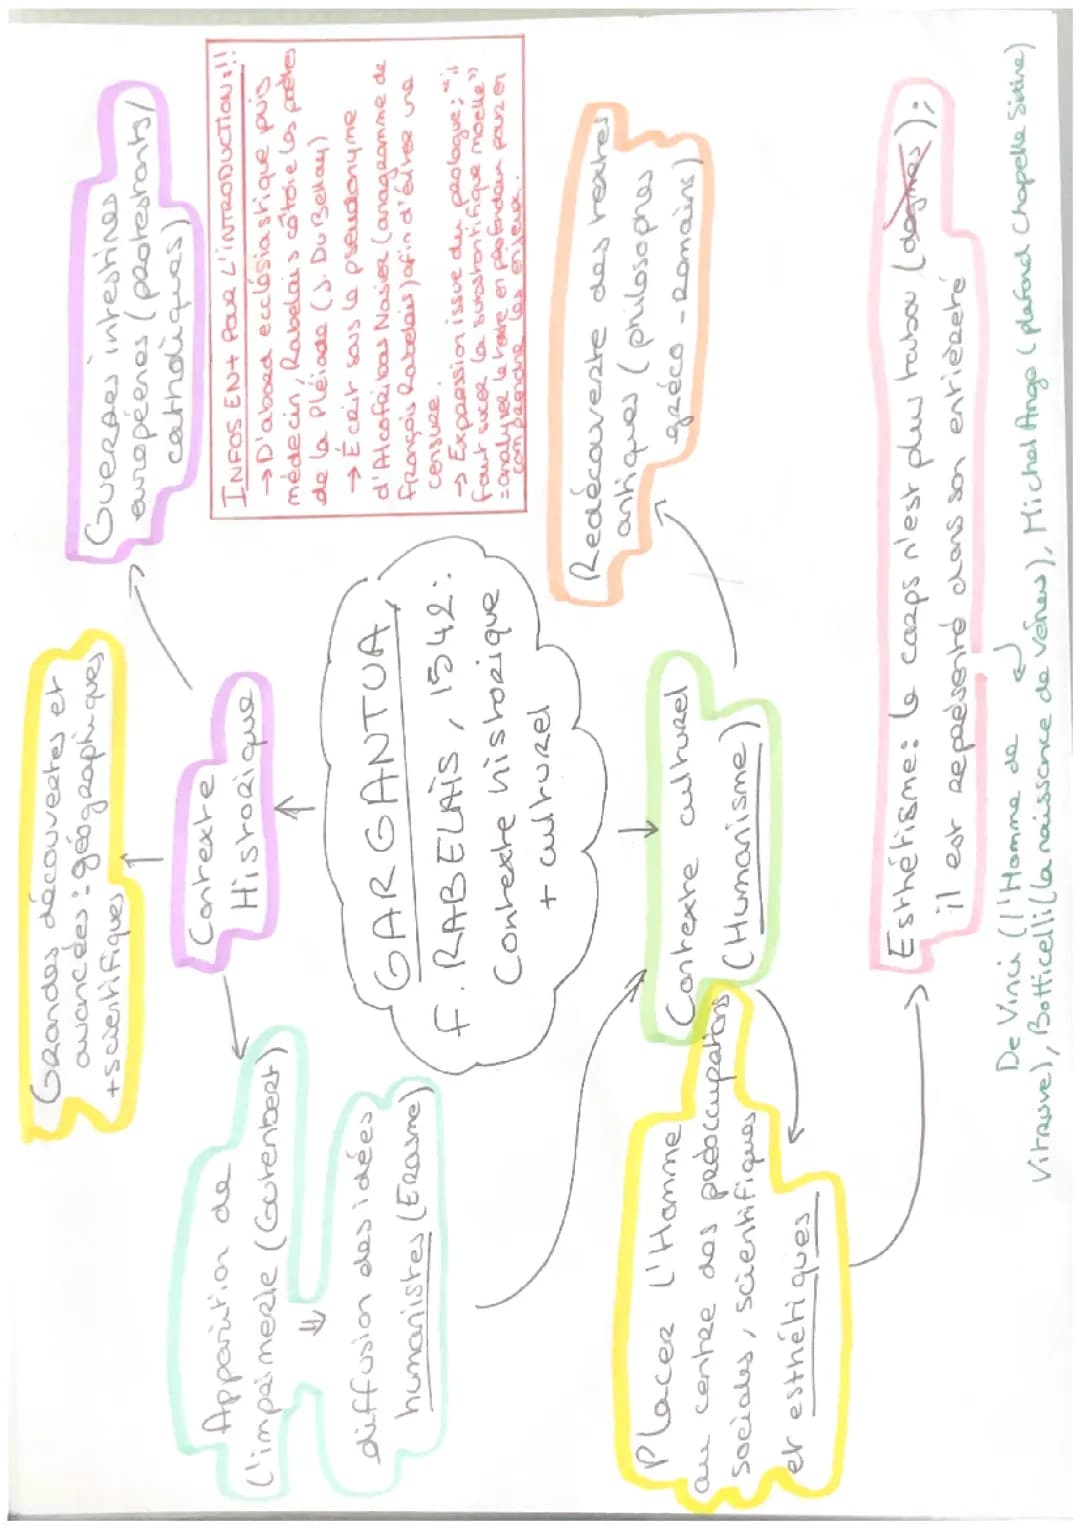 GARGANTUA,
F. RABELAIS, 1542:
Contexte historique
+ culturel
Contexte
Historique
Grandes découvertes et
avancées: géographiques
+scientifiques
Guerres intestines
européenes (protestants/
catholiques)
Apparition de
l'imprimerie (Gutenbert)
⇓
diffusion des idées
humanistes (Erasme)
INFOS EN+ POUR L'INTRODUCTION:!!
→ D'abord ecclésiastique puis
médecin, Rabelais côtoie les poètes
de la Pléiade (J. Du Bellay)
→ Écrit sous le pseudonyme
d'Alcofribas Nasier (anagramme de
François Rabelais) afin d'éviter une
censure.
→ Expression issue du prologue; "il
faut sucer la substantifique moelle"
=analyser le texte en profondeur pour en
comprendre les enjeux.
Contexte culturel
(Humanisme)
Redécouverte des textes
antiques (philosophes
gréco-romains)
Placer l'Homme
au centre des préoccupations
sociales, scientifiques
et esthétiques
Esthétisme: le corps n'est plus tabou (dogmes);
il est représenté dans son entièreté
De Vinci (l'Homme de
Vitruve), Botticelli(la naissance de Vénus), Michel Ange (plafond Chapelle Sixtine)